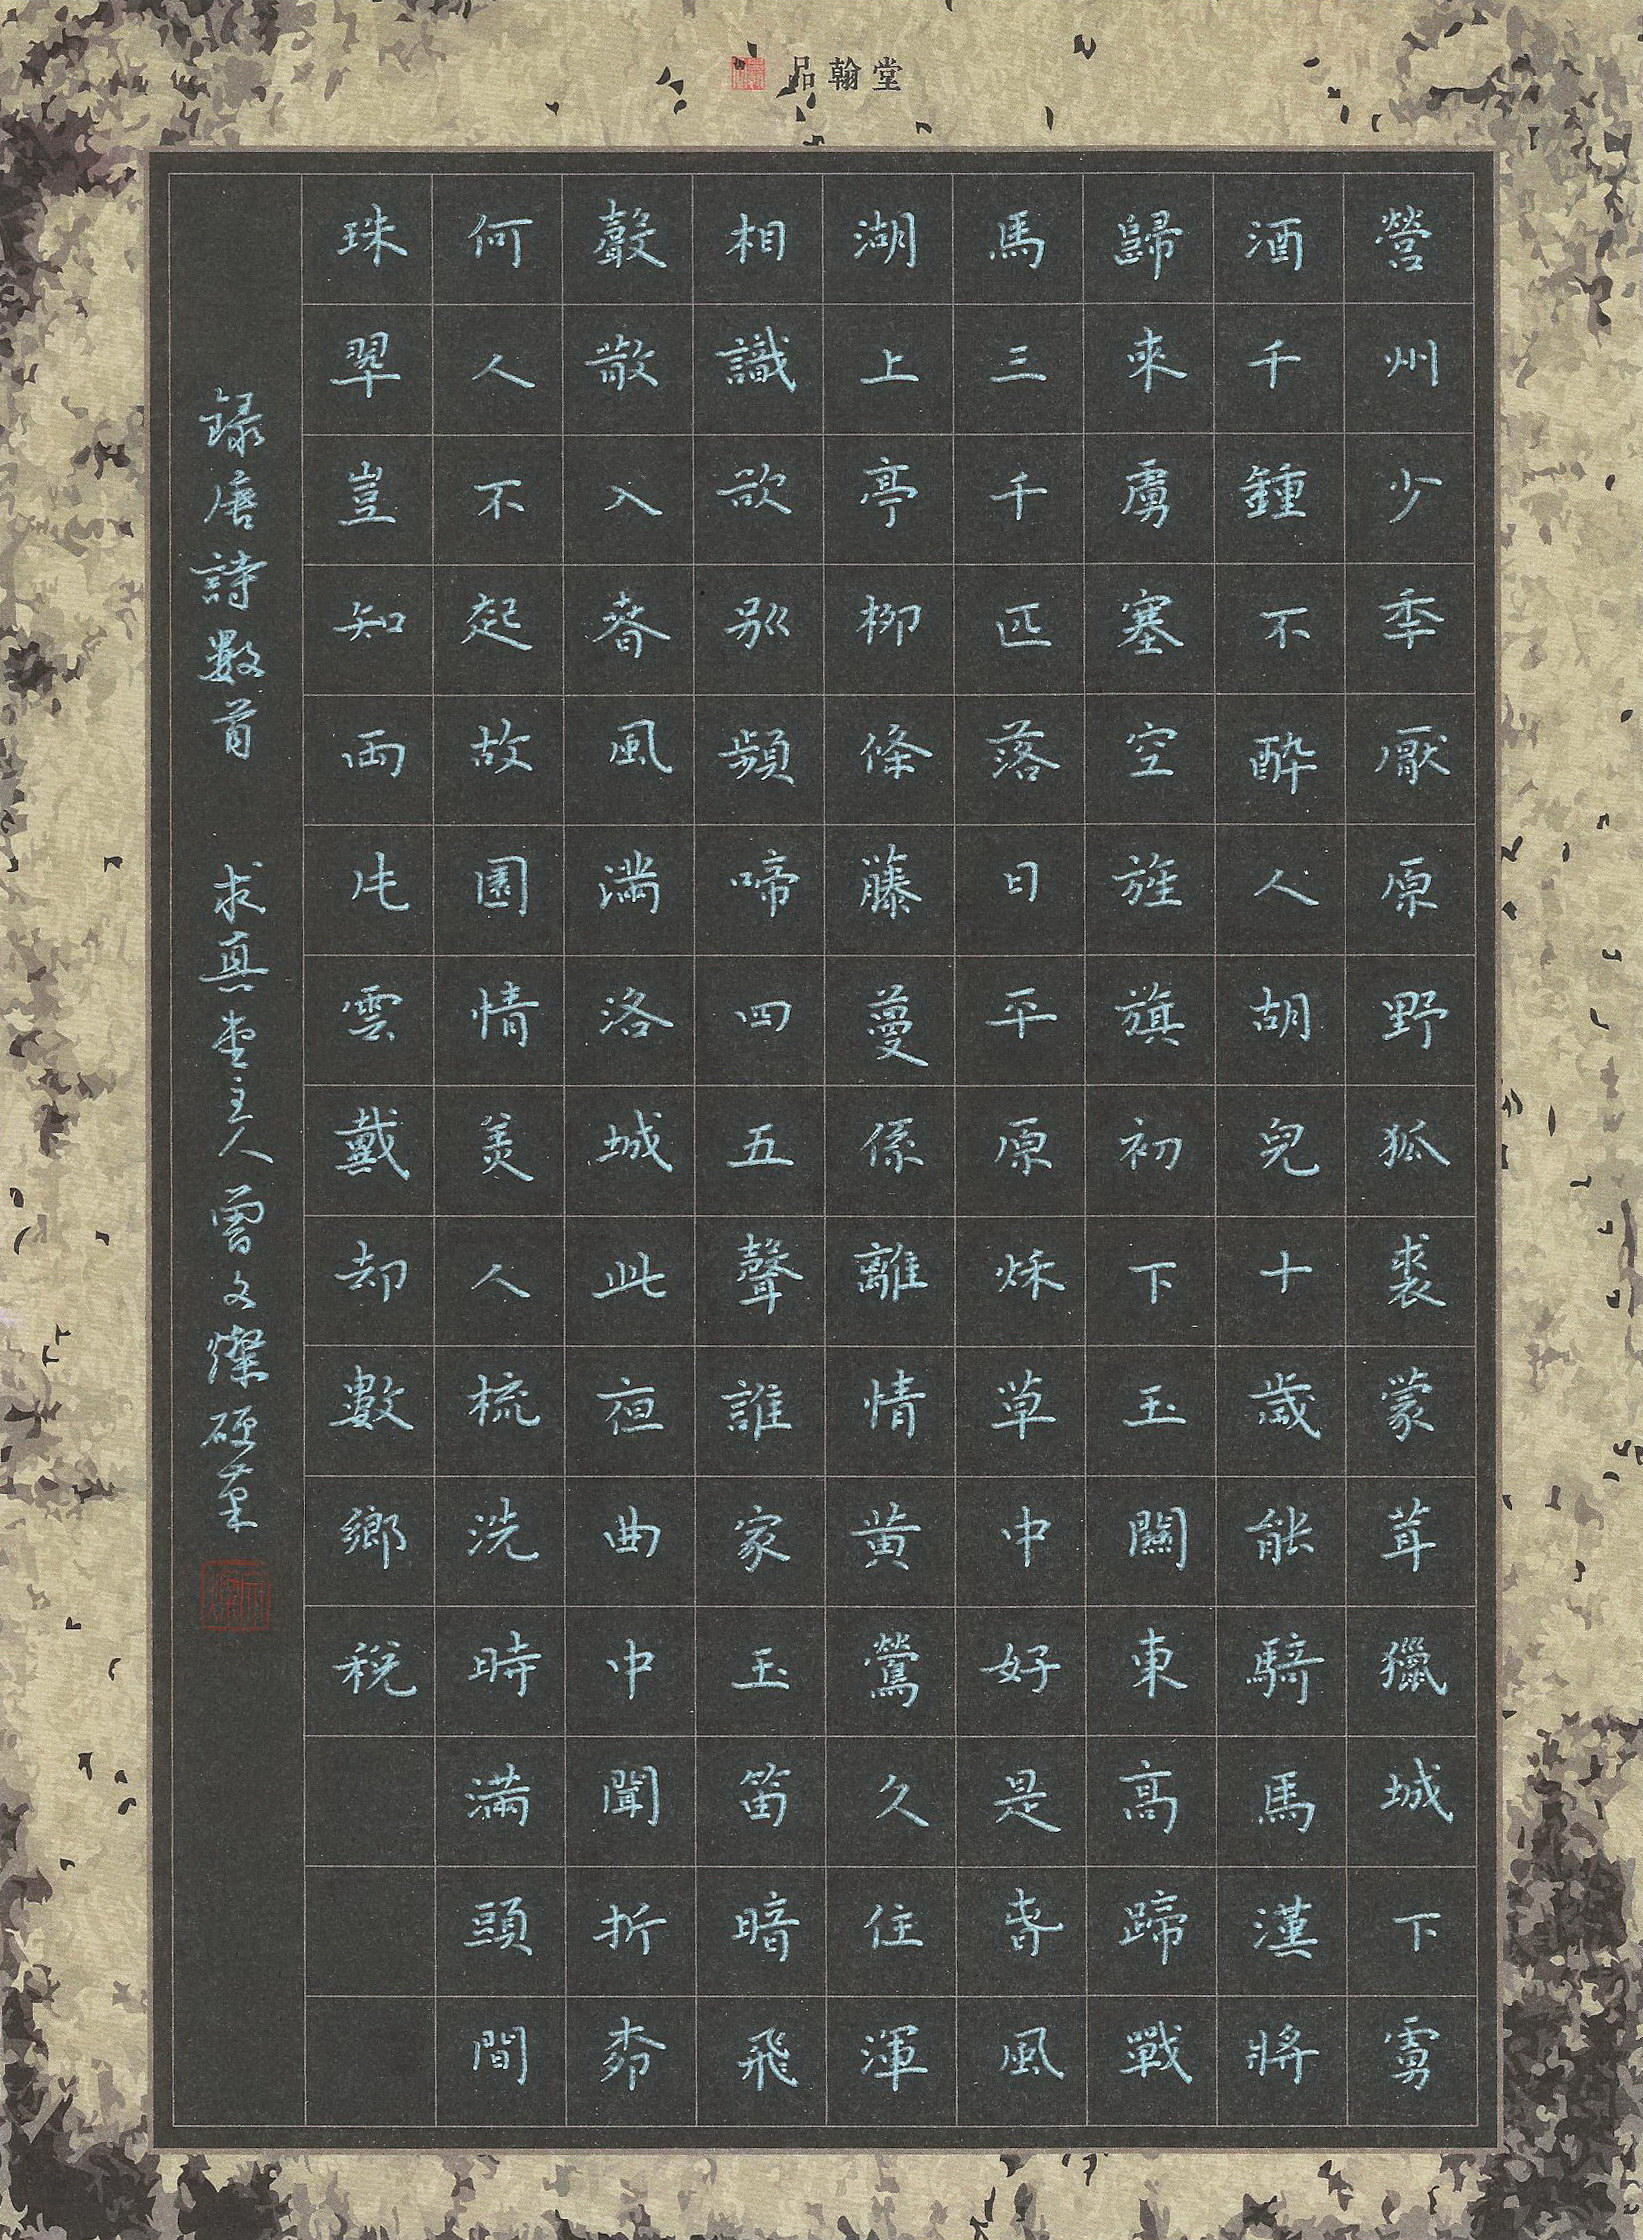 品翰堂
營州少秊厭原野狐裘蒙茸獵城下虜
酒千鍾不醉人胡兒十歲能騎馬漢將
歸來虜塞空旌旗初下玉關東高蹄戰
馬三千匹落日平原秋草中好是春風
湖上亭柳條藤蔓係離情黃鶯久住渾
相識欲別頻啼四五聲誰家玉笛暗飛
聲散入春風滿洛城此夜曲中聞折柳
何人不起故園情美人梳洗時滿頭間
珠翠豈知兩片雲戴却數鄉稅
錄唐詩數首 求真堂主人曾文燦硬筆